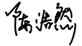 陈浩然